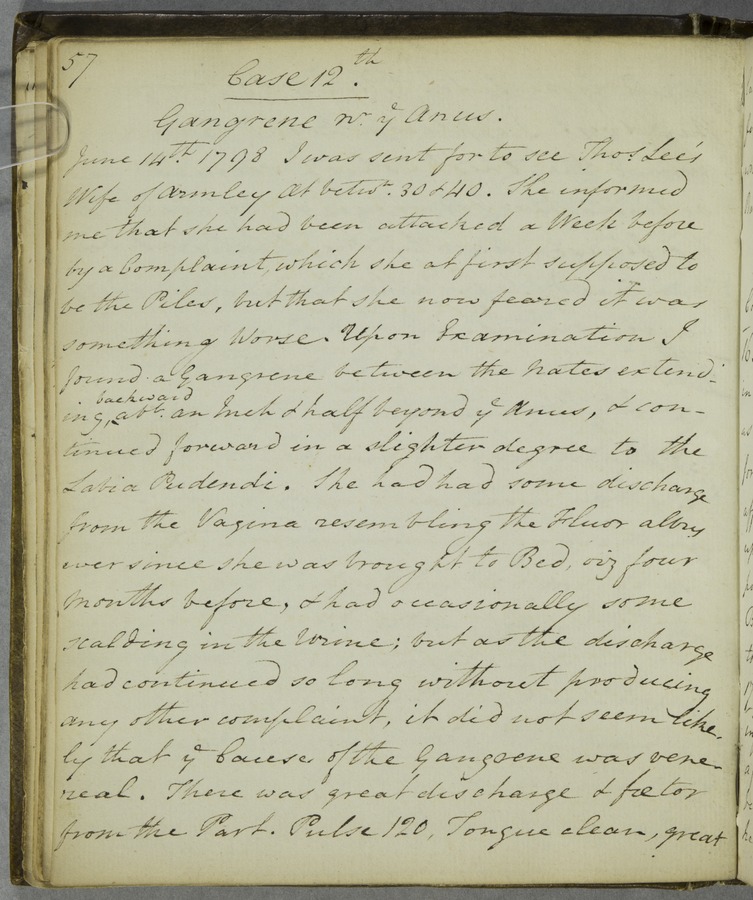 57
Case 12th.
Gangrene nr. ye Anus.
June 14th 1798 I was sent for to see Thos. Lee's
Wife of Armley Æt betwn. 30 & 40. She informed
me that she had been attacked a Week before
by a Complaint, which she at first supposed to
be the Piles, but that she now feared it was
something Worse. Upon Examination I
found a Gangrene between the Nates extend-
backward
ing, abt. an Inch & half beyond ye Anus, & con-
tinued forward in a slighter degree to the
Labia Pudendi. She had had some discharge
from the Vagina resembling the Fluor albus
ever since she was brought to Bed, viz four
Months before, & had occasionally some
scalding in the Urine; but as the discharge
had continued so long without producing
any other complaint, it did not seem like-
ly that ye Cause of the Gangrene was vene-
real. There was great discharge & fœtor
from the Part. Pulse 120, Tongue clean, great